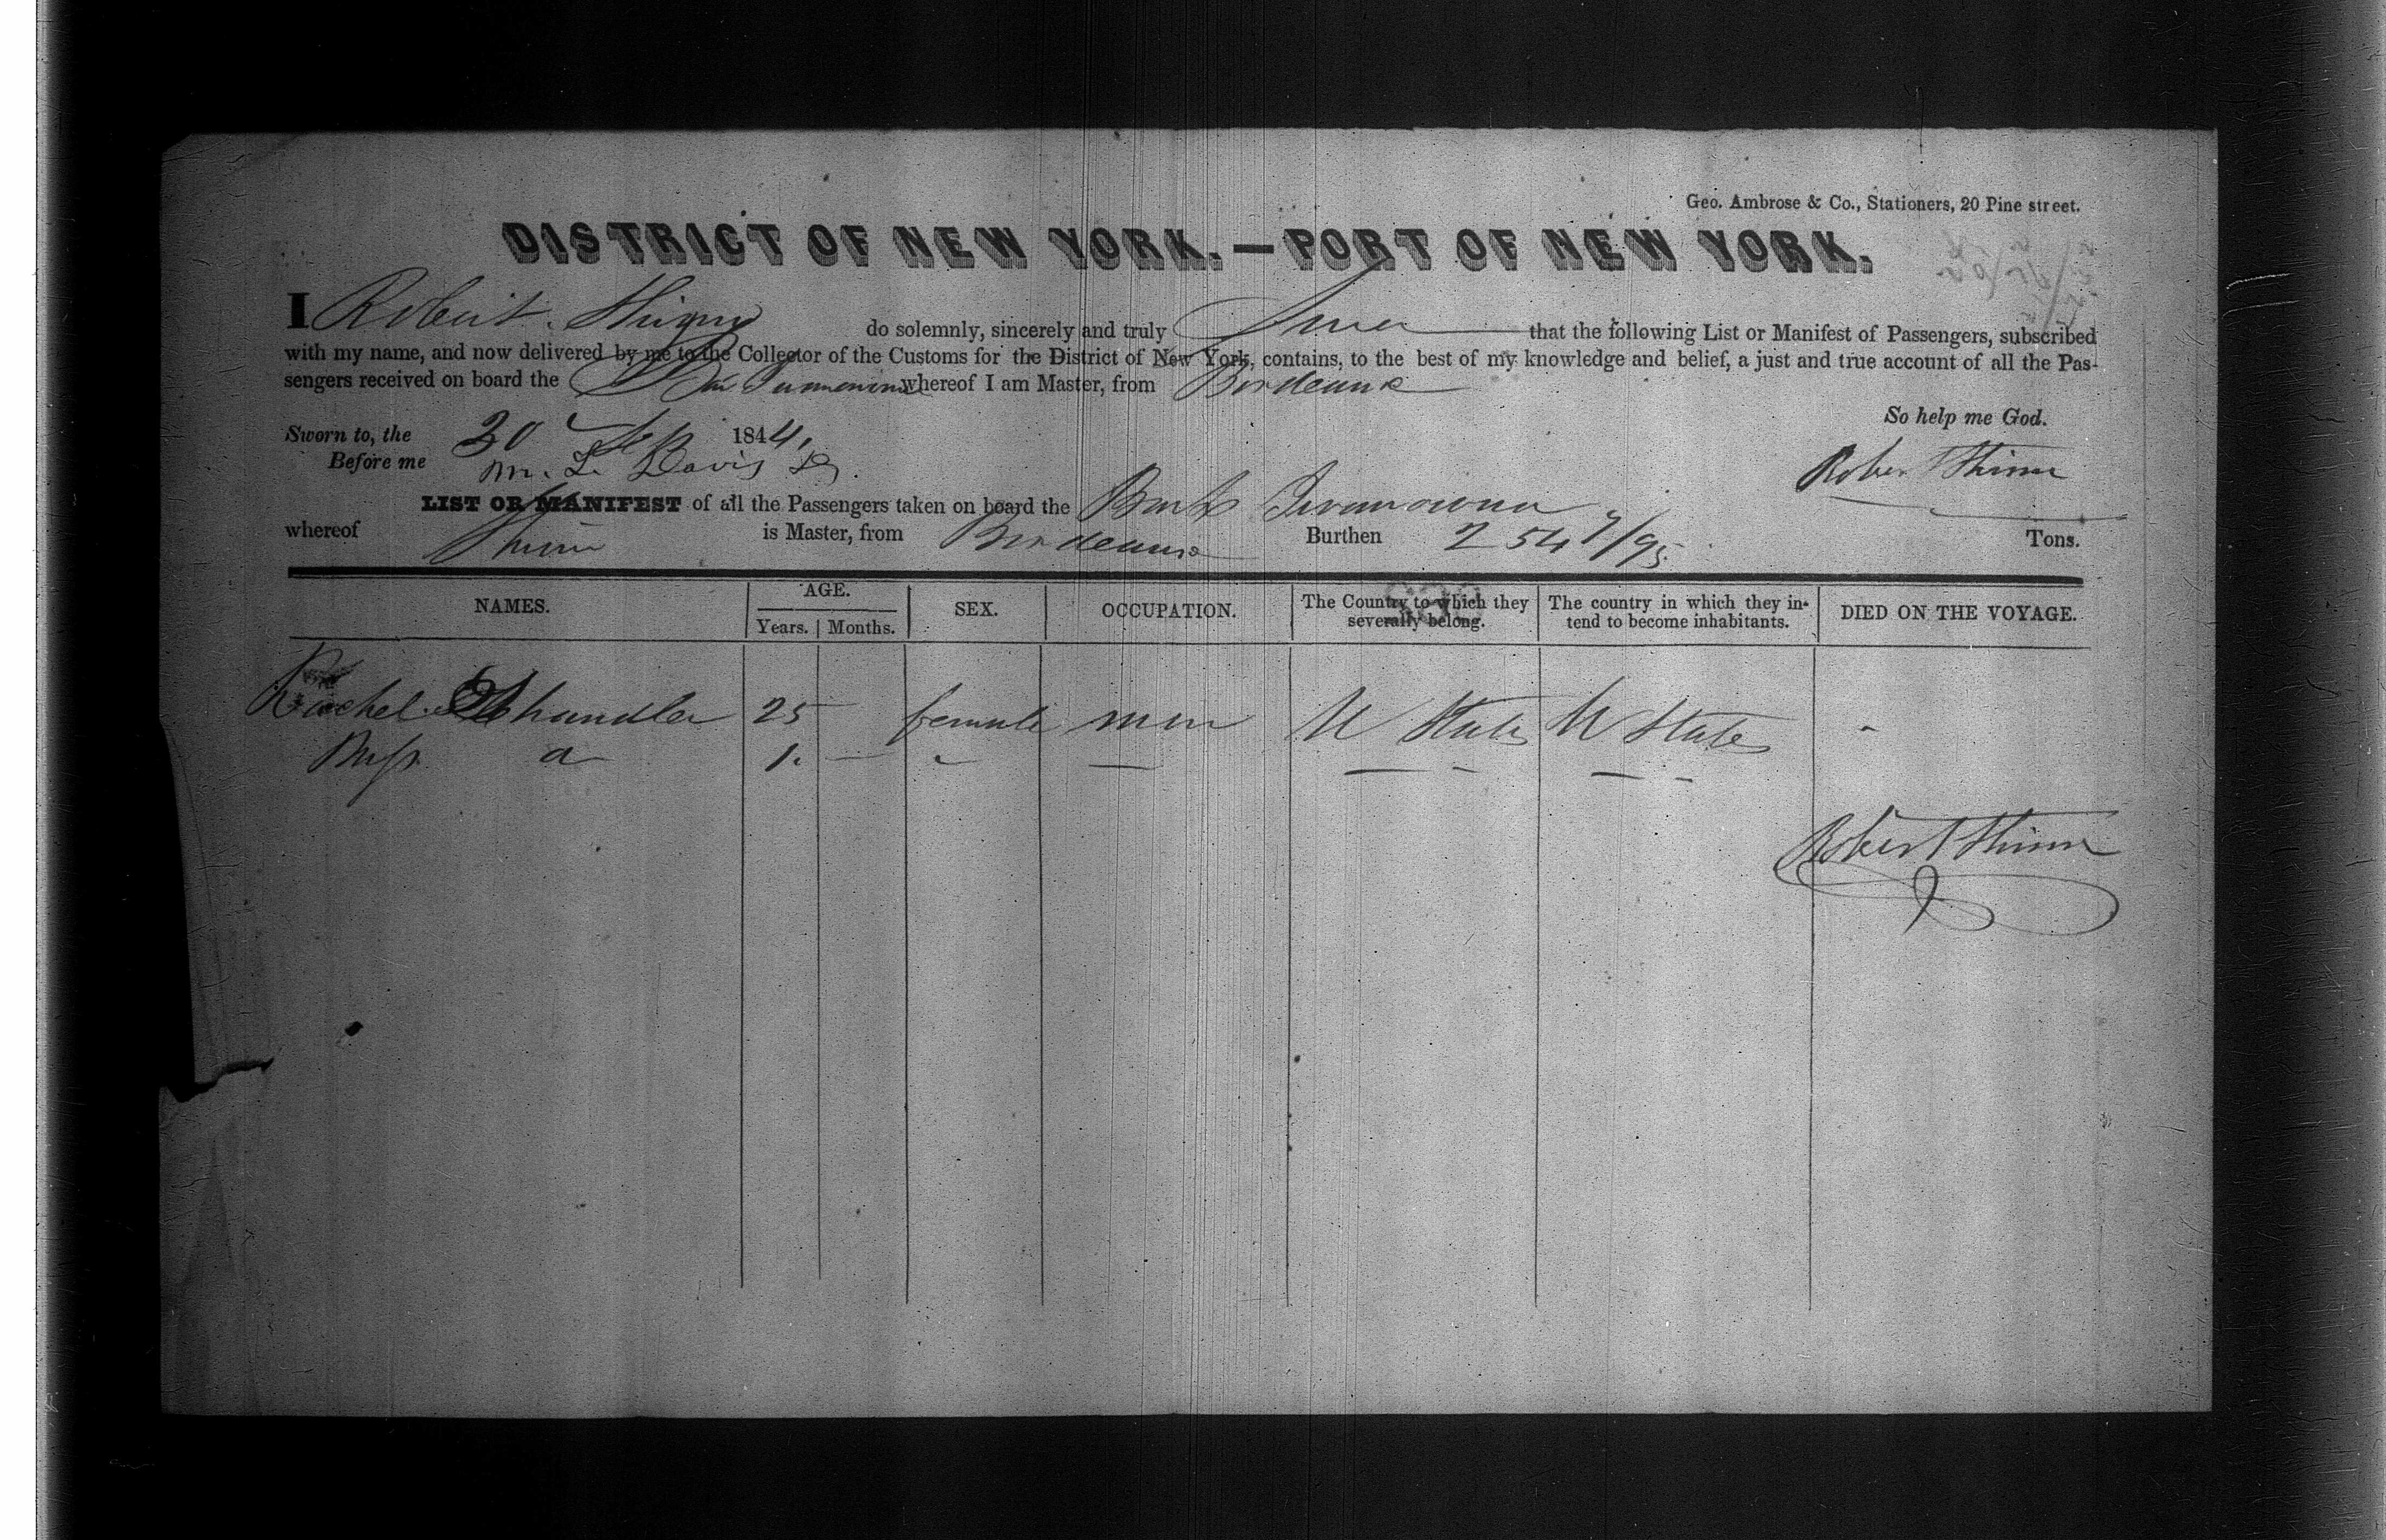 Geo. Ambrose & Co., Stationers, 20 Pine street.
DISTRICT OF NEW YORK.—PORT OF NEW YORK.
I Robert do solemnly, sincerely and truly that the following List or Manifest of Passengers, subscribed
with my name, and now delivered by me to the Collector of the Customs for the District of New York, contains, to the best of my knowledge and belief, a just and true account of all the Pas-
sengers received on board the whereof I am Master, from Bordeaux
So help me God.
Sworn to, the 30 Sep 1844,
Before me M. L. Davis
Robert
LIST OR MANIFEST of all the Passengers taken on board the Bark
whereof is Master, from Bordeaux Burthen 254 7/95 Tons.
NAMES. AGE. Years. Months. SEX. OCCUPATION. The Country to which they severally belong. The country in which they intend to become inhabitants. DIED ON THE VOYAGE.
Rachel Chandler 25 — female U States U States -
Miss 1. — — — —
Robert